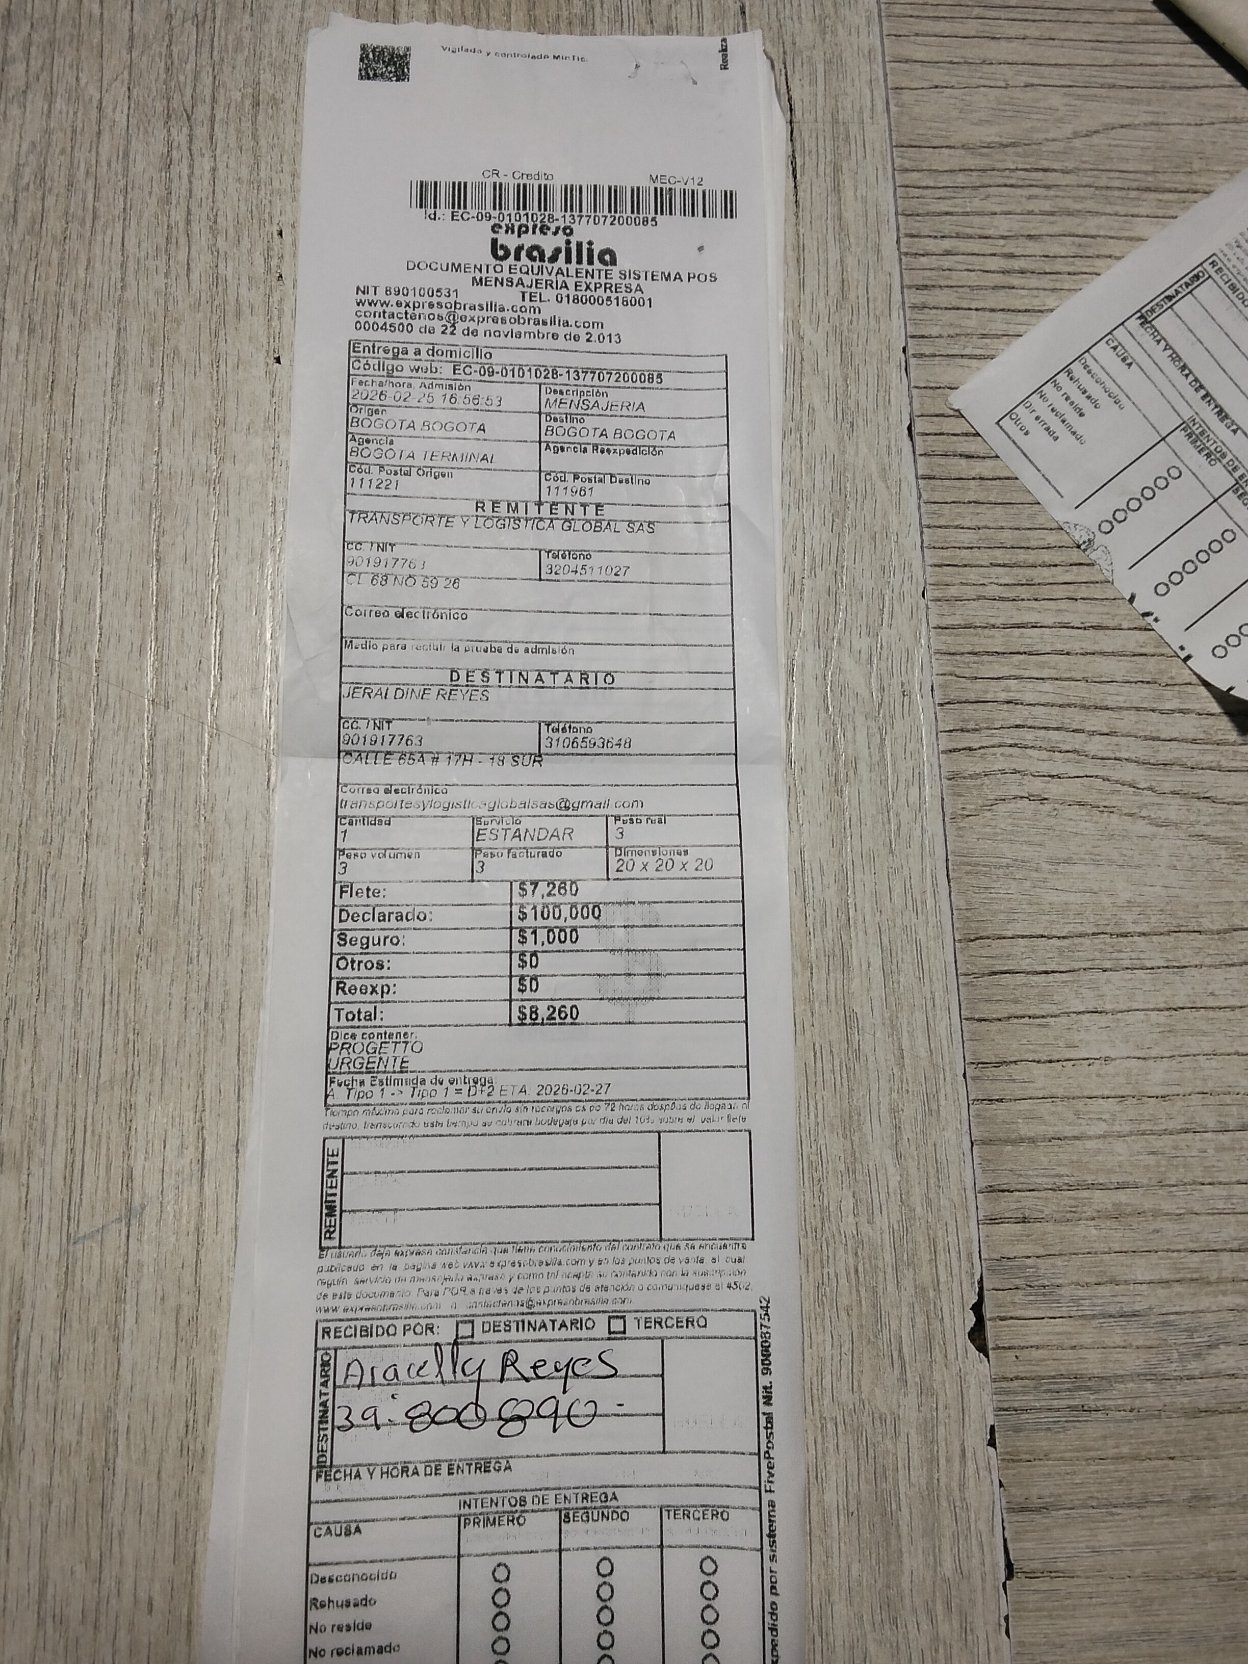 Vigilado y controlado MinTic.
Realiza
CR - Credito MEC-V12
Id.: EC-09-0101028-137707200085
expreso
brasilia
DOCUMENTO EQUIVALENTE SISTEMA POS
MENSAJERÍA EXPRESA
NIT 890100531 TEL. 018000518001
www.expresobrasilia.com
contactenos@expresobrasilia.com
0004500 de 22 de noviembre de 2.013
Entrega a domicilio
Código web: EC-09-0101028-137707200085
Fecha/hora, Admisión Descripción
2026-02-25 16:56:53 MENSAJERIA
Origen Destino
BOGOTA BOGOTA BOGOTA BOGOTA
Agencia Agencia Reexpedición
BOGOTA TERMINAL
Cód. Postal Origen Cód. Postal Destino
111221 111961
REMITENTE
TRANSPORTE Y LOGISTICA GLOBAL SAS
CC. / NIT Teléfono
901917763 3204511027
CL 68 NO 59 26
Correo electrónico
Medio para recibir la prueba de admisión
DESTINATARIO
JERALDINE REYES
CC. / NIT Teléfono
901917763 3106593648
CALLE 65A # 17H - 18 SUR
Correo electrónico
transportesylogisticaglobalsas@gmail.com
Cantidad Servicio Peso real
1 ESTANDAR 3
Peso volumen Peso facturado Dimensiones
3 3 20 x 20 x 20
Flete: $7,260
Declarado: $100,000
Seguro: $1,000
Otros: $0
Reexp: $0
Total: $8,260
Dice contener:
PROGETTO
URGENTE
Fecha Estimada de entrega
A. Tipo 1 -> Tipo 1 = D+2 ETA: 2026-02-27
Tiempo máximo para reclamar su envío sin recargos es de 72 horas después de llegada al
destino, transcurrido este tiempo se cobrará bodegaje por día del 10% sobre el valor flete
REMITENTE
El usuario deja expresa constancia que tiene conocimiento del contrato que se encuentra
publicado en la pagina web www.expresobrasilia.com y en los puntos de venta, el cual
regula servicio de mensajería expresa y como tal acepta su contenido con la suscripción
de este documento. Para PQR a través de los puntos de atención o comuníquese al #502,
www.expresobrasilia.com o contactenos@expresobrasilia.com
RECIBIDO POR: DESTINATARIO TERCERO
DESTINATARIO
Aracelly Reyes
39.800890
FECHA Y HORA DE ENTREGA
INTENTOS DE ENTREGA
CAUSA PRIMERO SEGUNDO TERCERO
Desconocido
Rehusado
No reside
No reclamado
pedido por sistema FivePostal Nit. 900087542
RECIBIDO
DESTINATARIO
FECHA Y HORA DE ENTREGA
INTENTOS DE
CAUSA PRIMERO
Desconocido
Rehusado
No reside
No reclamado
Dir errada
Otros